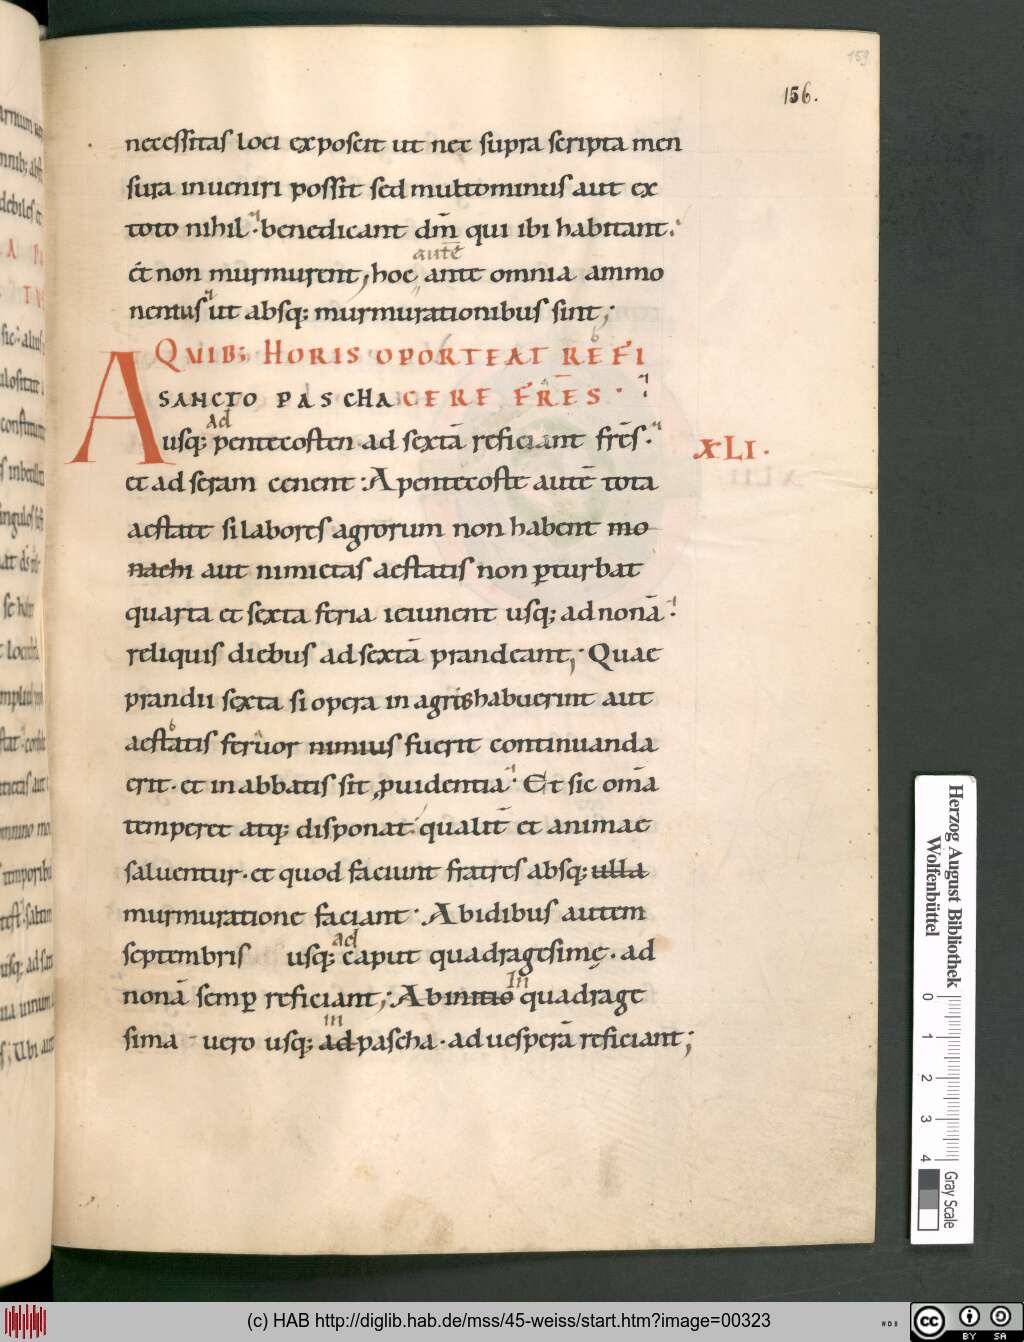 159
156.
necessitas loci exposcit ut nec supra scripta men
sura inueniri possit sed multominus aut ex
toto nihil · benedicant dm̄ qui ibi habitant.
autē
et non murmurent; hoc ante omnia ammo
nentus ut absq; murmurationibus sint;
QUIB; HORIS OPORTEAT REFI
SANCTO PASCHA CERE FRĒS ·
ad
Ausq; pentecosten ad sextā reficiant frēs ·
XLI ·
et ad seram cenent : A pentecoste autē tota
aestate si labores agrorum non habent mo
nachi aut nimietas aestatis non ꝑturbat
quarta et sexta feria ieiunent usq; ad nonā ·
reliquis diebus ad sextā prandeant; Quae
prandii sexta si opera in agris habuerint aut
aestatis feruor nimius fuerit continuanda
erit · et in abbatis sit ꝓuidentia · Et sic om̄a
temperet atq; disponat · qualit̄ et animae
saluentur · et quod faciunt fratres absq; ulla
murmuratione faciant · Abidibus autem
septembris usq; caput quadragesimę · ad
ad
nonā semꝑ reficiant; Abinitio quadrage
In
sima uero usq; ad pascha · ad uesperā reficiant;
in
Herzog August Bibliothek
Wolfenbüttel
0 1 2 3 4
Gray Scale
(c) HAB http://diglib.hab.de/mss/45-weiss/start.htm?image=00323
WDB
cc BY SA